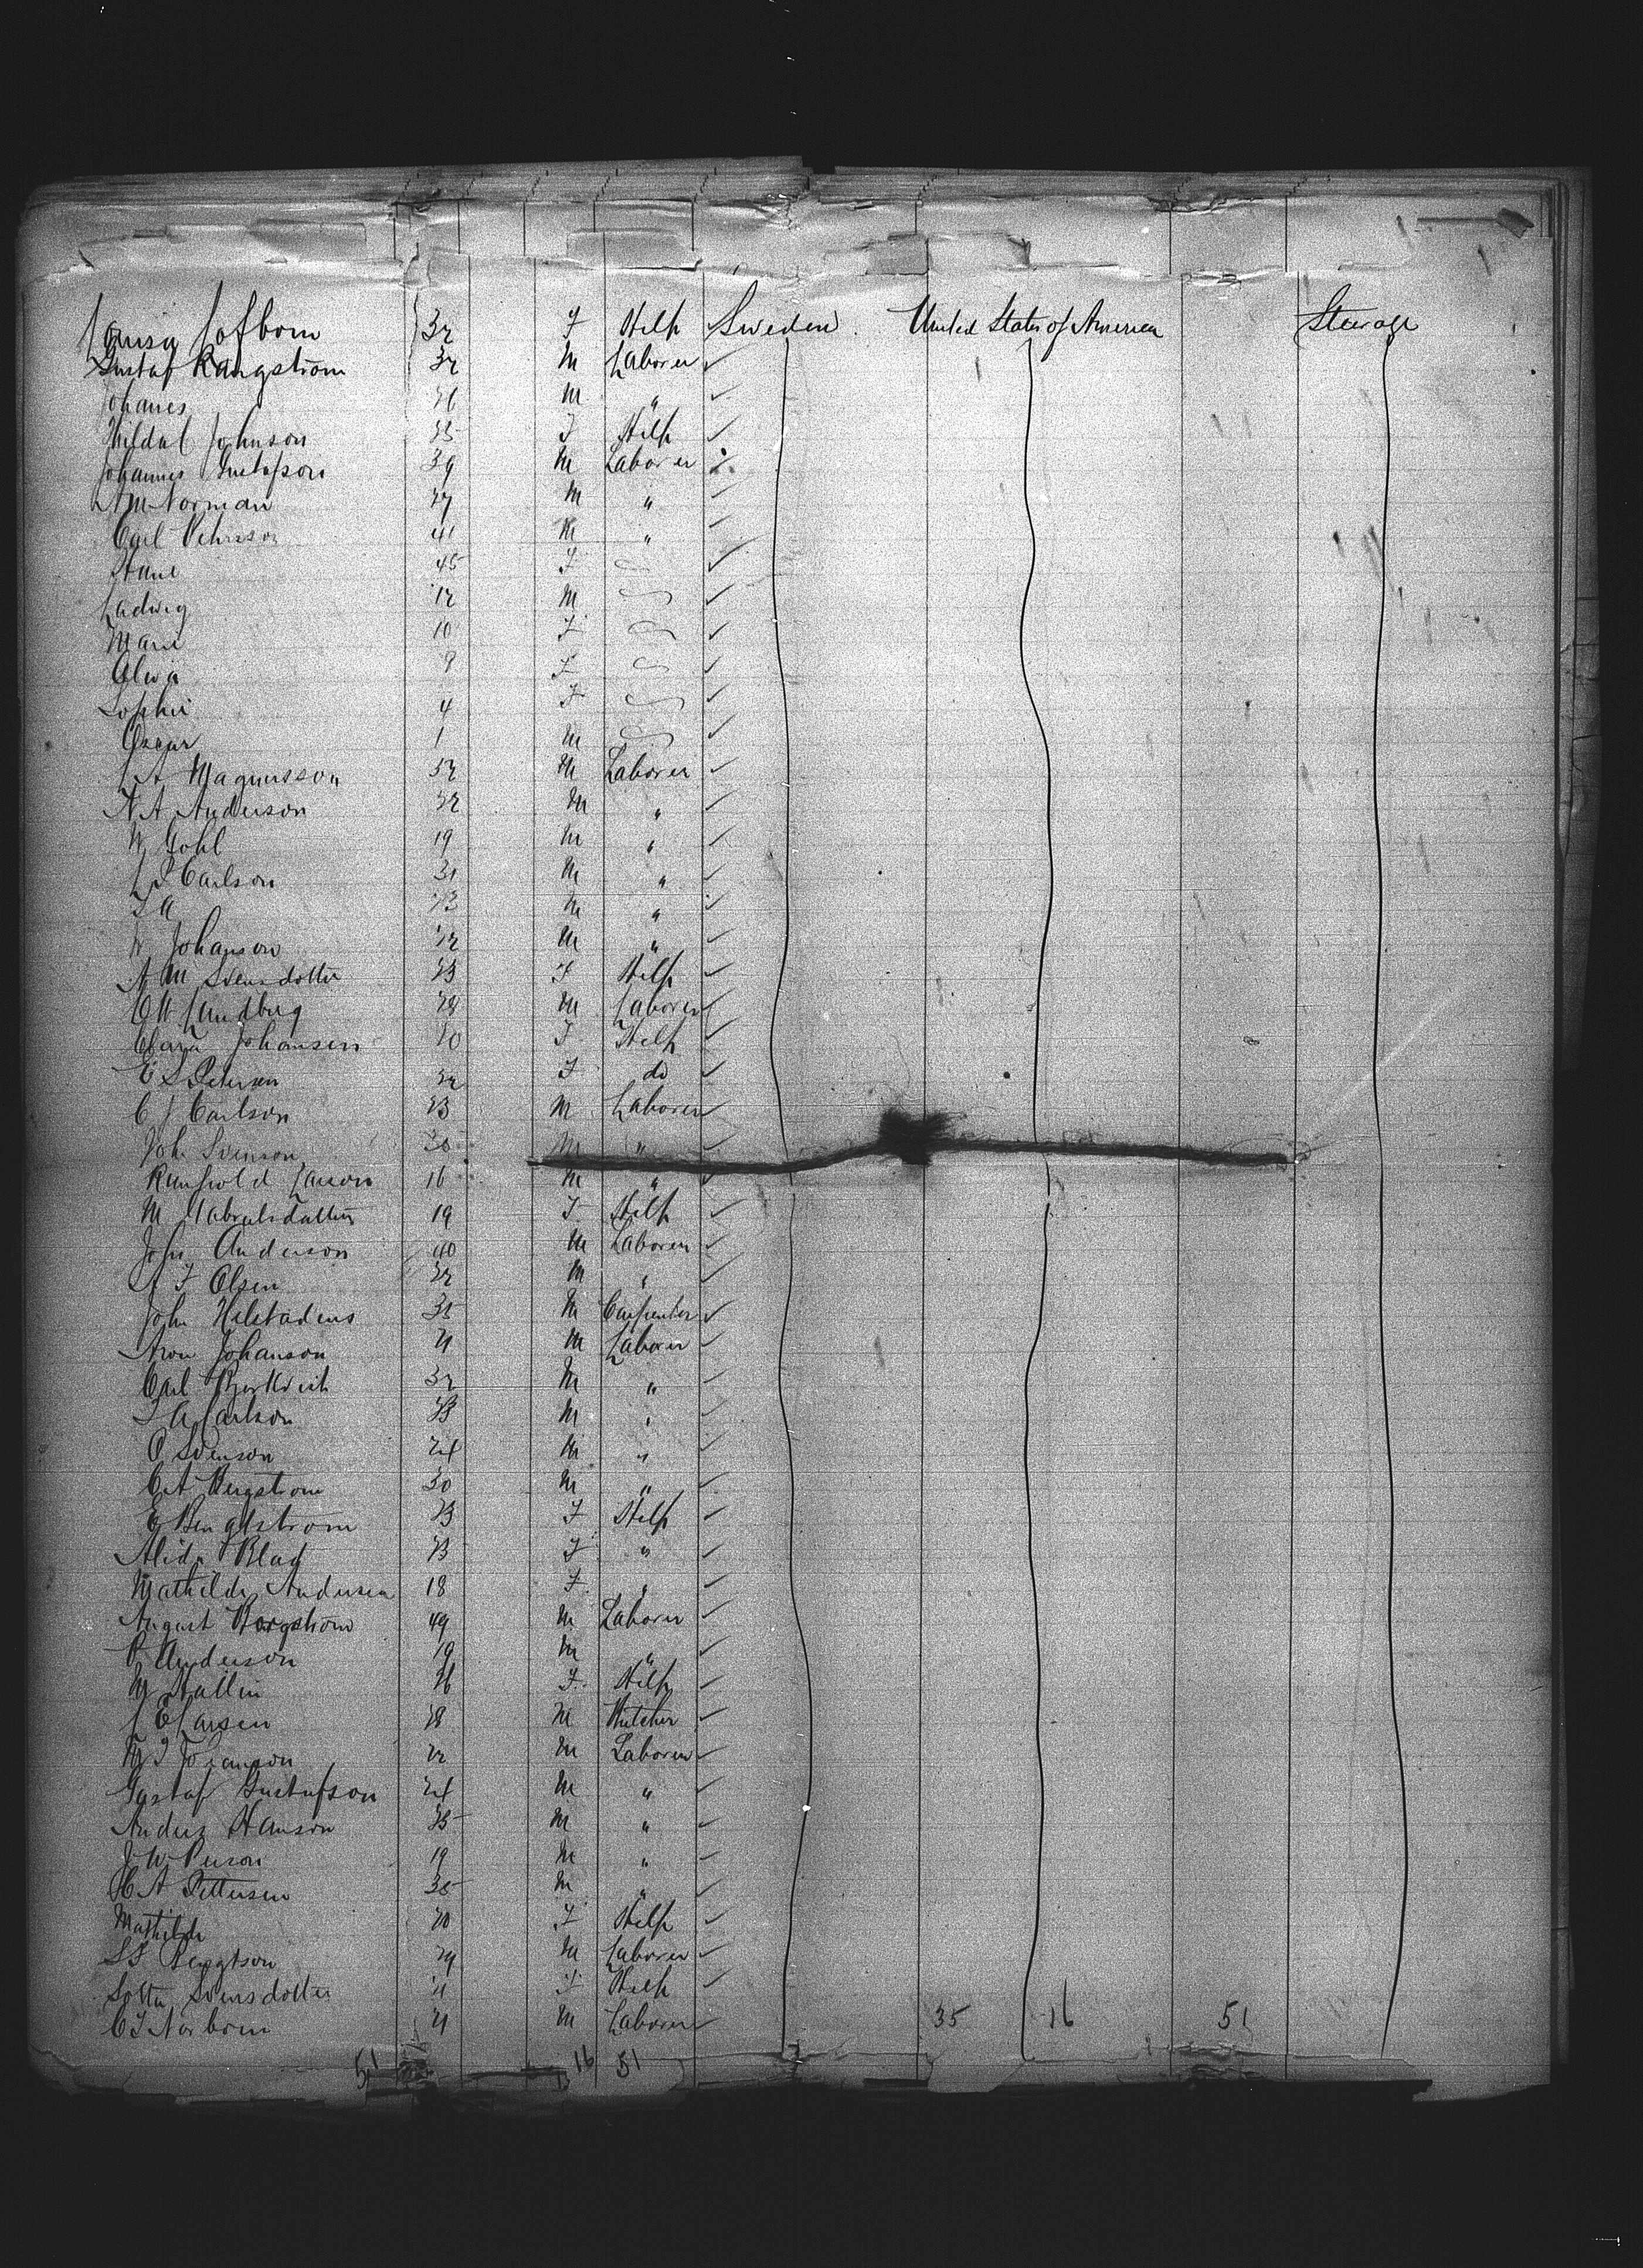 Lovisa Lofbom 32 F Help Sweden United States of America Steerage
Gustaf Rangstrom 32 M Laborer
Johanes 26 M "
Hildal Johnson 25 F Help
Johannes Gustafson 39 M Laborer
A M Norman 27 M "
Carl Pehrsson 41 M "
Hane 45 F
Ludwig 12 M
Marie 10 F
Oliva 9 F
Sophie 4 F
Oscar 1 M
Magnusson 52 M Laborer
N A Anderson 32 M "
19 M "
Carlson 31 M "
M "
Johanson 22 M "
A M Svensdotter 23 F Help
Lundberg 28 M Laborer
Clara Johansen 20 F Help
E S Petersen 32 F do
C J Carlson 23 M Laborer
Joh. Svenson M "
16 M "
M 19 F Help
John Anderson 40 M Laborer
A F Olsen 22 M "
John 35 M Carpenter
Aron Johanson 21 M Laborer
Carl 32 M "
Carlson 23 M "
O Svenson 24 M "
C A Bergstrom 30 M "
E Bengtstrom 23 F Help
Alida Blad 23 F "
Mathilda Andersen 18 F "
August Borgstrom 49 M Laborer
P Anderson 19 M "
M Hallin 26 F Help
E Larsen 28 M Butcher
Johanson 22 M Laborer
Gustaf Gustafson 24 M "
Anders Hanson 25 M "
J W Person 19 M "
C A Pettersen 35 M "
Mathilda 20 F Help
Bengtson 29 M Laborer
Lotta Svensdotter 21 F Help
C F Norbom 21 M Laborer 35 16 51
51 16 51